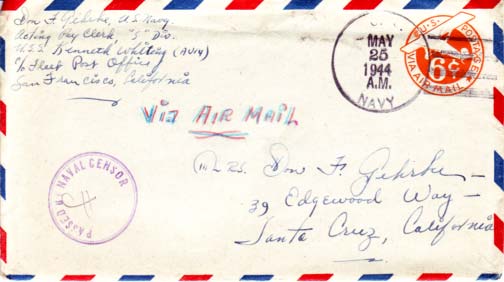 Don F Gehrke, U.S. Navy.
Acting Pay Clerk, "S" Div.
U.S.S. Kenneth Whiting (AV14)
c/o Fleet Post Office
San Francisco, California
U.S.
MAY
25
1944
A.M.
NAVY
U.S. POSTAGE
6¢
VIA AIR MAIL
Via AIR MAIL
PASSED BY NAVAL CENSOR
Mrs. Don F. Gehrke —
39 Edgewood Way —
Santa Cruz, California